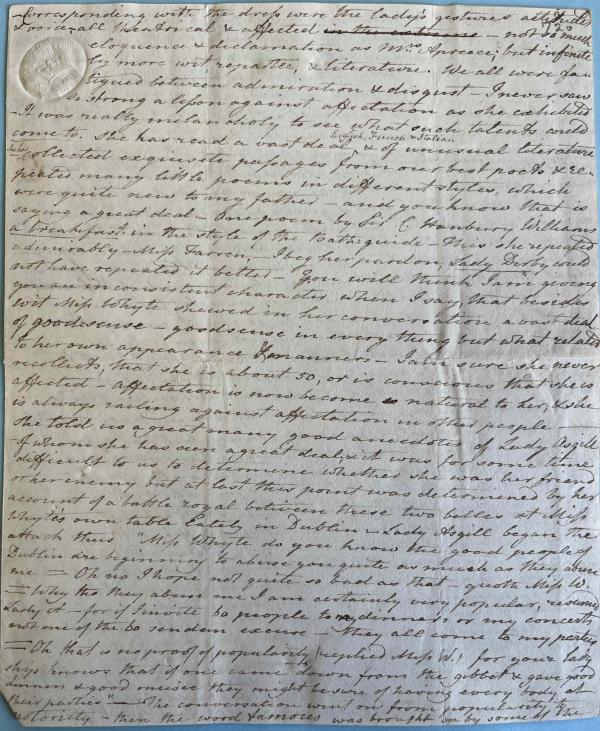 Corresponding with the dress were the lady's gestures attitude
& voice - all theatrical & affected in the extreme - not so much
eloquence & declamation as Mrs Apreece; but infinite
ly more wit repartee, & literature. We all were fa
tigued between admiration & disgust - I never saw
so strong a lesson against affectation as she exhibited
- It was really melancholy to see what such talents could
come to. She has read a vast deal & of unusual literature
English, French & Italian
collected exquisite passages from our best poets & re-
peated many little poems in different styles, which
were quite new to my father - and you know that is
saying a great deal - One poem by Sir C Hanbury Williams
a breakfast in the style of the Bath guide - This she repeated
admirably - Miss Farren, - I beg her pardon, Lady Derby could
not have repeated it better - You will think I am giving
you an inconsistent character when I say, that besides
wit Miss Whyte shewed in her conversation a vast deal
of goodsense - goodsense in every thing but what related
to her own appearance & manners - I am sure she never
recollects, that she is about 50, or is conscious that she is
affected - affectation is now become so natural to her, & she
is always railing against affectation in other people -
She told us a great many good anecdotes of Lady Asgill
of whom she has seen a great deal, & it was for some time
difficult to us to determine whether she was her friend
or her enemy but at last this point was determined by her
account of a battle royal between these two belles at Miss
Whyte's own table lately in Dublin - Lady Asgill began the
attack thus "Miss Whyte do you know the good people of
Dublin are beginning to abuse you quite as much as they abuse
me = Oh no I hope not quite so bad as that - quoth Miss W.
= Why tho they abuse me I am certainly very popular, resumed
Lady A - for if I invite 60 people to my dinners or my concerts
not one of the 60 sends an excuse - they all come to my parties
= Oh that is no proof of popularity (replied Miss W.) for your lady
ship knows that if one came down from the gibbet & gave good
dinners & good music they might be sure of having every body at
their parties" - The conversation went on from popularity to
notoriety - then the word famous was brought in by some of the